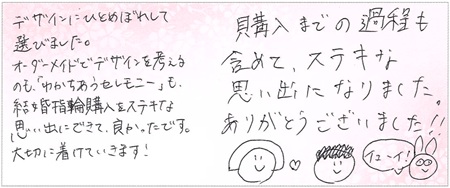 デザインにひとめぼれして
選びました。
オーダーメイドでデザインを考える
のも、「わかちあうセレモニー」も、
結婚指輪購入をステキな
思い出にできて、良かったです。
大切に着けていきます!
購入までの過程も
含めて、ステキな
思い出になりました。
ありがとうございました!!
イェーイ!